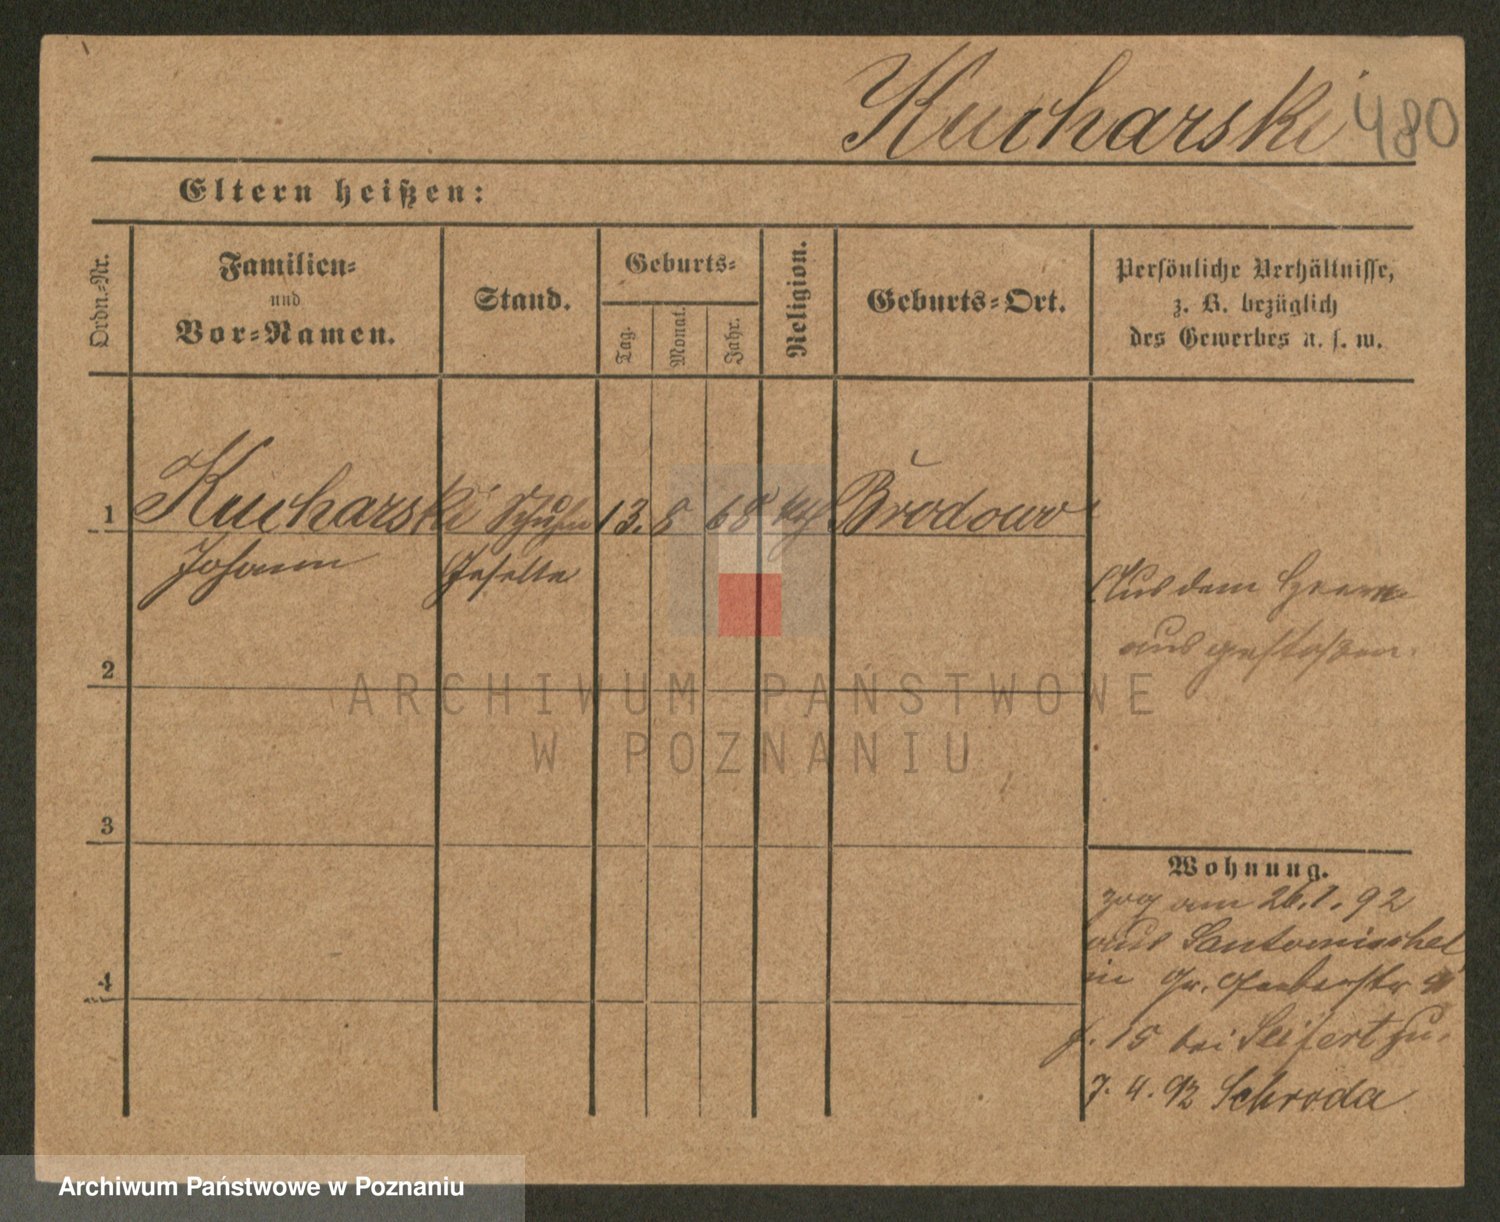 Kucharski 480
Eltern heißen:
Ordn.-Nr.
Familien-
und
Vor-Namen.
Stand.
Geburts-
Tag.
Monat.
Jahr.
Religion.
Geburts-Ort.
Persönliche Verhältnisse,
z. B. bezüglich
des Gewerbes u. s. w.
1 Kucharski Schuhm 13. 5 68 kth Brodowo
Johann Geselle
Aus dem Heere
aus gestoßen.
2
3
4
Wohnung.
zog am 26.1.92
aus Santomischel
in Gr. Gerberstr
15 bei Seifert zu.
7. 4. 92 Schroda
ARCHIWUM PAŃSTWOWE
W POZNANIU
Archiwum Państwowe w Poznaniu